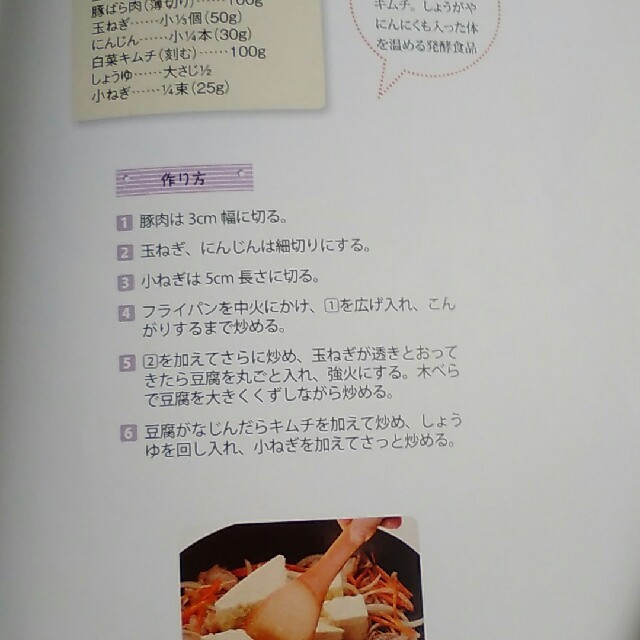 豚ばら肉(薄切り)……100g
玉ねぎ……小⅓個(50g)
にんじん……小¼本(30g)
白菜キムチ(刻む)……100g
しょうゆ……大さじ½
小ねぎ……¼束(25g)
キムチ。しょうがや
にんにくも入った体
を温める発酵食品
作り方
1 豚肉は3cm幅に切る。
2 玉ねぎ、にんじんは細切りにする。
3 小ねぎは5cm長さに切る。
4 フライパンを中火にかけ、1を広げ入れ、こん
がりするまで炒める。
5 2を加えてさらに炒め、玉ねぎが透きとおって
きたら豆腐を丸ごと入れ、強火にする。木べら
で豆腐を大きくくずしながら炒める。
6 豆腐がなじんだらキムチを加えて炒め、しょう
ゆを回し入れ、小ねぎを加えてさっと炒める。